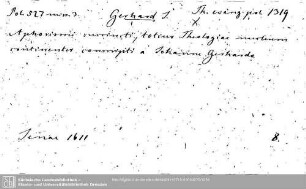 Gerhard J.
Th. evang. pol 1319
Aphorismi succincti, totius Theologiae nucleum
continentes conscripti a Johanne Gerhardo
Jenae 1611
8.
Sächsische Landesbibliothek -
Staats- und Universitätsbibliothek Dresden